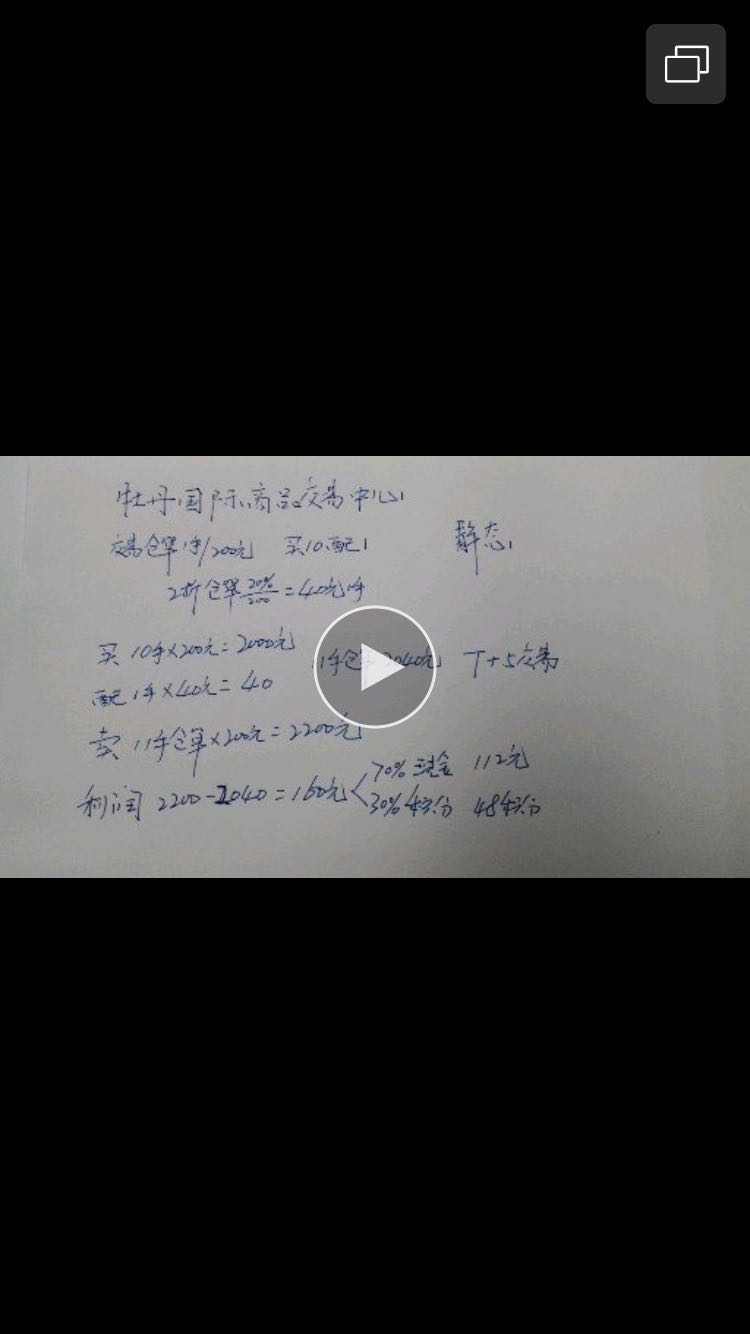 牡丹国际商品交易中心
交易仓单1手/200元 买10配1 静态
2折仓单20%/200=40元/手
买 10手×200元=2000元
配 1手×40元=40
11手仓单2040元 T+5交易
卖 11手仓单×200元=2200元
利润 2200-2040=160元
70% 现金 112元
30%积分 48积分